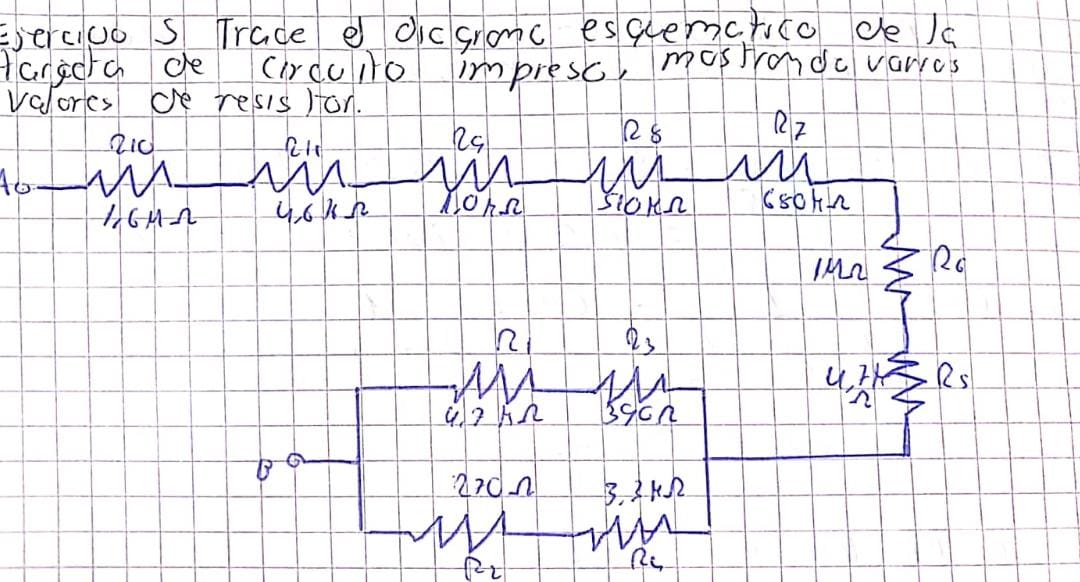 Ejercicio 5 Trace el diagrama esquematico de la
targeta de circuito impreso, mostrando varios
valores de resistor.
R10 R11 R9 R8 R7
A
1,6MΩ 4,6kΩ 1.0kΩ 510kΩ 680kΩ
1MΩ R6
R1 R3
4,7kΩ R5
4,7kΩ 390Ω
B
270Ω 3.3kΩ
R2 R4